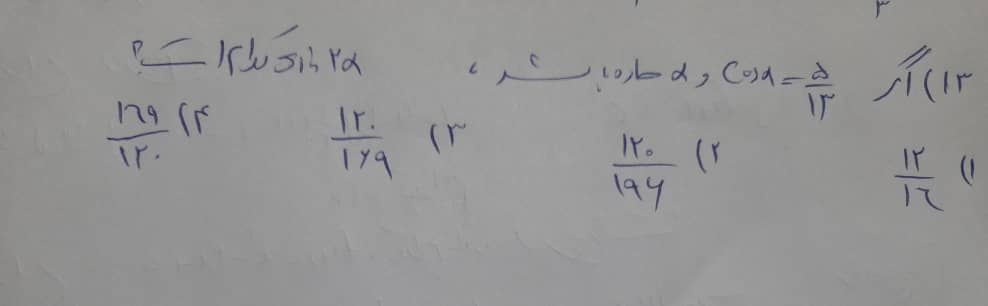 ۳
۱۳) اگر Cosα = ۵/۱۳ و α حاده باشد، ۲α کدام است؟
۱) ۱۲/۱۶ ۲) ۱۲۰/۱۹۶ ۳) ۱۲۰/۱۶۹ ۴) ۱۶۹/۱۲۰